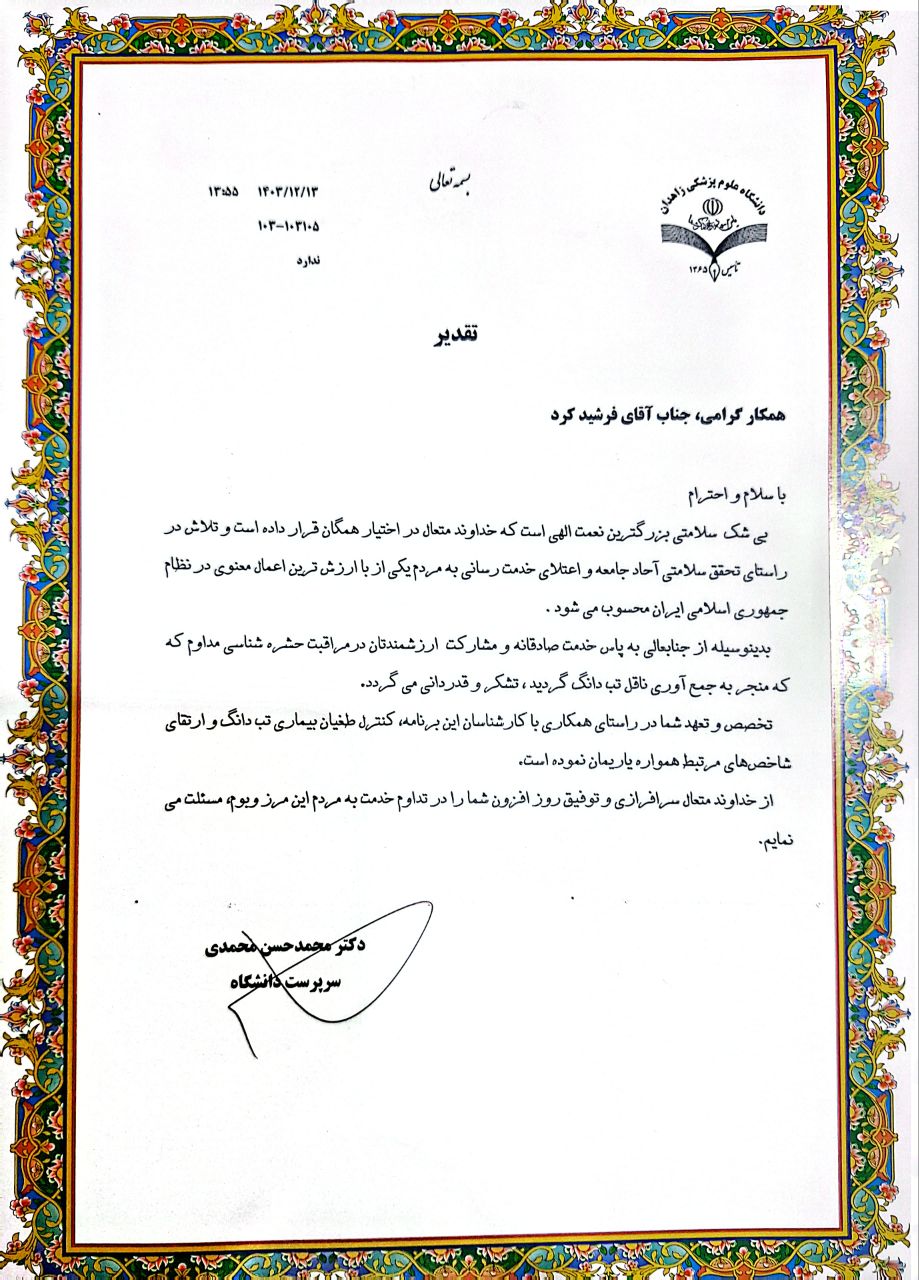 بسمه تعالی
۱۴۰۳/۱۲/۱۳ ۱۳:۵۵
۱۰۳-۱۰۳۱۰۵
ندارد
دانشگاه علوم پزشکی زاهدان
تاسیس ۱۳۶۵
تقدیر
همکار گرامی، جناب آقای فرشید کرد
با سلام و احترام
بی شک سلامتی بزرگترین نعمت الهی است که خداوند متعال در اختیار همگان قرار داده است و تلاش در
راستای تحقق سلامتی آحاد جامعه و اعتلای خدمت رسانی به مردم یکی از با ارزش ترین اعمال معنوی در نظام
جمهوری اسلامی ایران محسوب می شود .
بدینوسیله از جنابعالی به پاس خدمت صادقانه و مشارکت ارزشمندتان درمراقبت حشره شناسی مداوم که
که منجر به جمع آوری ناقل تب دانگ گردید ، تشکر و قدردانی می گردد.
تخصص و تعهد شما در راستای همکاری با کارشناسان این برنامه، کنترل طغیان بیماری تب دانگ و ارتقای
شاخص‌های مرتبط همواره یاریمان نموده است.
از خداوند متعال سرافرازی و توفیق روز افزون شما را در تداوم خدمت به مردم این مرز وبوم، مسئلت می
نمایم.
دکتر محمدحسن محمدی
سرپرست دانشگاه